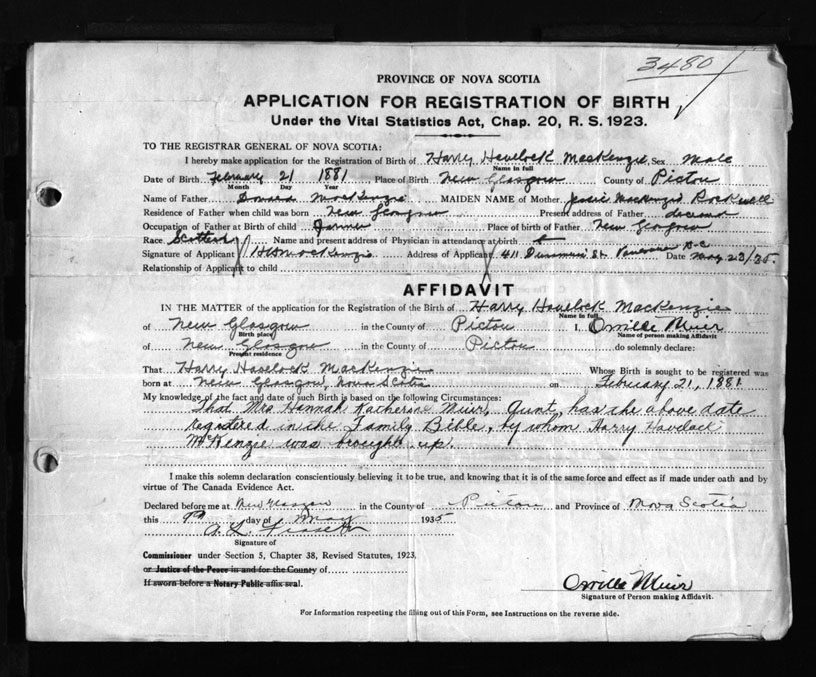 3480
PROVINCE OF NOVA SCOTIA
APPLICATION FOR REGISTRATION OF BIRTH
Under the Vital Statistics Act, Chap. 20, R. S. 1923.
TO THE REGISTRAR GENERAL OF NOVA SCOTIA:
I hereby make application for the Registration of Birth of Harry Havelock MacKenzie Sex Male
Name in full
Date of Birth February 21 1881 Place of Birth New Glasgow County of Pictou
Month Day Year
Name of Father MacKenzie MAIDEN NAME of Mother Jessie MacKenzie Rockwell
Residence of Father when child was born New Glasgow Present address of Father deceased
Occupation of Father at Birth of child Farmer Place of birth of Father New Glasgow
Race Scottish Name and present address of Physician in attendance at birth
Signature of Applicant HHMacKenzie Address of Applicant 411 Dunsmuir St. Vancouver B-C Date May 23/35.
Relationship of Applicant to child
AFFIDAVIT
IN THE MATTER of the application for the Registration of the Birth of Harry Havelock MacKenzie
Name in full
of New Glasgow in the County of Pictou I, Orville Muir
Birth place Name of person making Affidavit
of New Glasgow in the County of Pictou do solemnly declare:
Present residence
That Harry Havelock MacKenzie Whose Birth is sought to be registered was
born at New Glasgow, Nova Scotia on February 21, 1881
My knowledge of the fact and date of such Birth is based on the following Circumstances:
That Mrs Hannah Katherine Muir, Aunt, has the above date
registered in the Family Bible, by whom Harry Havelock
McKenzie was brought up.
I make this solemn declaration conscientiously believing it to be true, and knowing that it is of the same force and effect as if made under oath and by
virtue of The Canada Evidence Act.
Declared before me at New Glasgow in the County of Pictou and Province of Nova Scotia
this 9th day of May 1935
A. L.
Signature of
Commissioner under Section 5, Chapter 38, Revised Statutes, 1923.
or Justice of the Peace in and for the County of
If sworn before a Notary Public affix seal.
Orville Muir
Signature of Person making Affidavit.
For Information respecting the filling out of this Form, see Instructions on the reverse side.